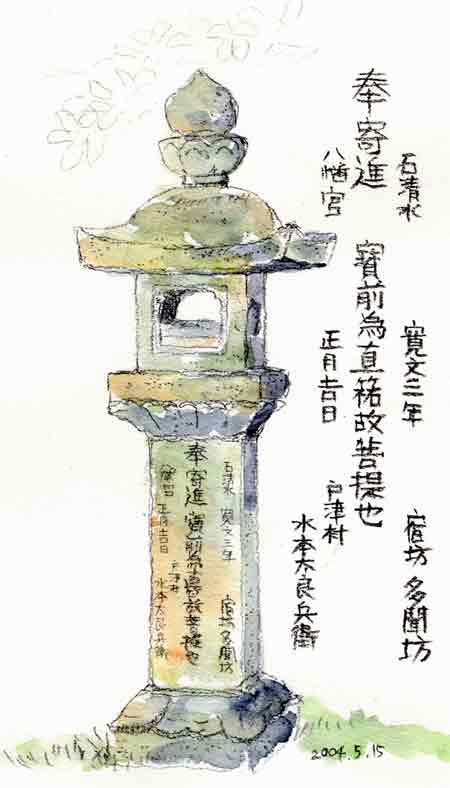 石清水 寛文三年 宿坊 多聞坊
奉寄進 寳前為直祐故菩提也
八幡宮 正月吉日 戸津村
水本太良兵衛
石清水 寛文三年 宿坊 多聞坊
奉寄進 寳前為 故菩提也
八幡宮 正月吉日 戸津村
水本太良兵衛
2004.5.15